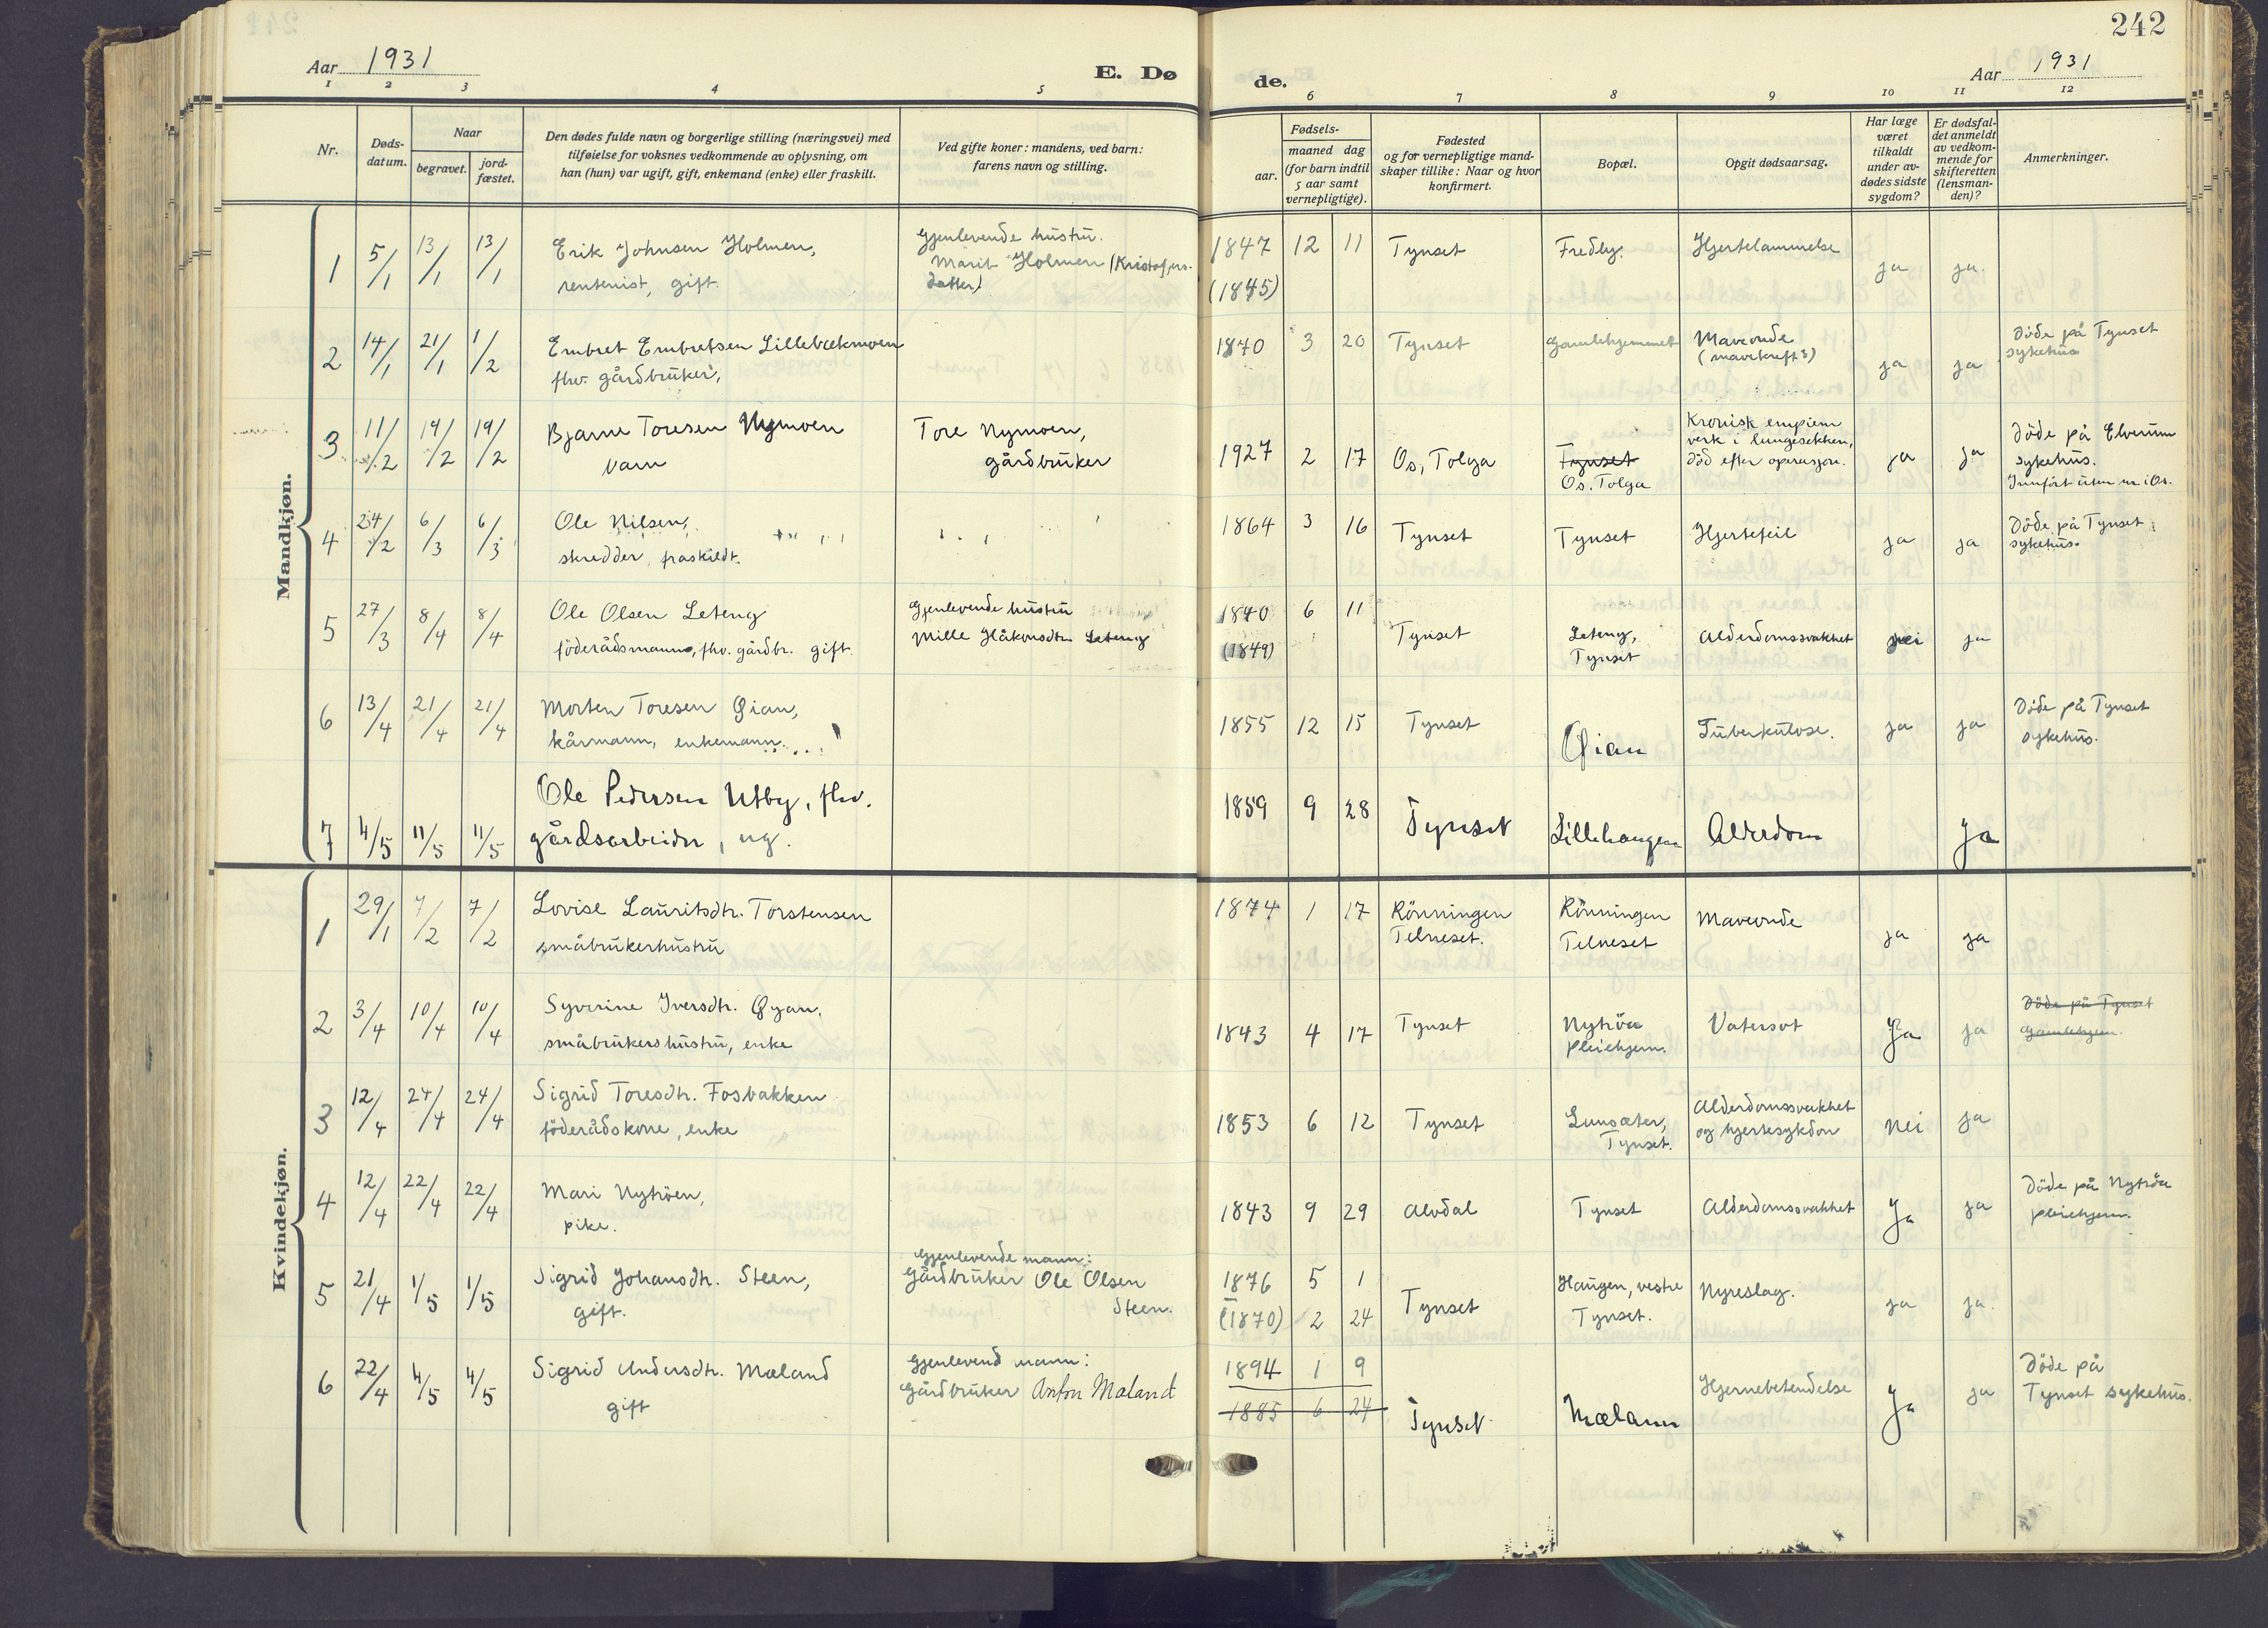 242
Aar 1931
E. Dø
de.
Aar 1931
1 2 3 4 5 6 7 8 9 10 11 12
Nr.
Døds-
datum.
Naar
begravet.
jord-
fæstet.
Den dødes fulde navn og borgerlige stilling (næringsvei) med
tilføielse for voksnes vedkommende av oplysning, om
han (hun) var ugift, gift, enkemand (enke) eller fraskilt.
Ved gifte koner: mandens, ved barn:
farens navn og stilling.
Fødsels-
aar.
maaned dag
(for barn indtil
5 aar samt
vernepligtige).
Fødested
og for vernepligtige mand-
skaper tillike: Naar og hvor
konfirmert.
Bopæl.
Opgit dødsaarsag.
Har læge
været
tilkaldt
under av-
dødes sidste
sygdom?
Er dødsfal-
det anmeldt
av vedkom-
mende for
skifteretten
(lensman-
den)?
Anmerkninger.
Mandkjøn.
1 5/1 13/1 13/1
Erik Johnsen Holmen,
rentenist, gift.
Gjenlevende hustru.
Marit Holmen (Kristofers-
datter)
1847 12 11
(1845)
Tynset
Fredly.
Hjertelammelse
ja ja.
2 14/1 21/1 1/2
Embret Embretsen Lillebækmoen
fhv. gårdbruker,
1870 3 20
Tynset
Gamlehjemmet
Maveonde
(mavekreft?)
ja ja
Döde på Tynset
sykehus
3 11/2 19/2 19/2
Bjarne Toresen Nymoen
barn
Tore Nymoen,
gårdbruker
1927 2 17
Os, Tolga
Tynset
Os. Tolga
Kronisk empiem
verk i lungesekken,
död efter operasjon.
ja ja
Döde på Elverum
sykehus.
Innfört uten nr i Os.
4 24/2 6/3 6/3
Ole Nilsen,
skredder, fraskildt.
1864 3 16
Tynset
Tynset
Hjertefeil
ja ja
Döde på Tynset
sykehus.
5 27/3 8/4 8/4
Ole Olsen Leteng
föderådsmann, fhv. gårdbr. gift.
Gjenlevende hustru
Mille Håkonsdtr. Leteng
1840 6 11
(1849)
Tynset
Leteng,
Tynset
Alderdomssvakhet
nei ja
6 13/4 21/4 21/4
Morten Toresen Qian,
kårmann, enkemann.
1855 12 15
Tynset
Qian
Tuberkulose.
ja ja
Döde på Tynset
sykehus.
7 4/5 11/5 11/5
Ole Pedersen Utby, fhv.
gårdsarbeider, ug.
1859 9 28
Tynset
Lillehaugen
Alderdom
Ja
Kvindekjøn.
1 29/1 7/2 7/2
Lovise Lauritsdtr. Torstensen
småbrukerhustru
1874 1 17
Rönningen
Telneset.
Rönningen
Telneset
Maveonde
ja ja
2 3/4 10/4 10/4
Syverine Iversdtr. Qyan,
småbrukers hustru, enke
1843 4 17
Tynset
Nytröa
pleiehjem.
Vatersot
Ja ja
Döde på Tynset
gamlehjem.
3 12/4 24/4 24/4
Sigrid Toresdtr. Fosbakken
föderådskone, enke
1853 6 12
Tynset
Lunsæter,
Tynset.
Alderdomssvakhet
og hjertesykdom
nei ja
4 12/4 22/4 22/4
Mari Nytröen,
pike.
1843 9 29
Alvdal
Tynset
Alderdomssvakhet
Ja ja
Döde på Nytröa
pleiehjem.
5 21/4 1/5 1/5
Sigrid Johansdtr. Steen,
gift.
Gjenlevende mann:
Gårdbruker Ole Olsen
Steen.
1876 5 1
(1870) 2 24
Tynset
Haugen, vestre
Tynset.
Nyreslag.
ja ja.
6 22/4 4/5 4/5
Sigrid Andersdtr. Mæland
gift
Gjenlevend mann:
Gårdbruker Anton Mæland
1894 1 9
1885 6 24
Tynset
Mælann
Hjernebetendelse
Ja ja
Döde på
Tynset sykehus.